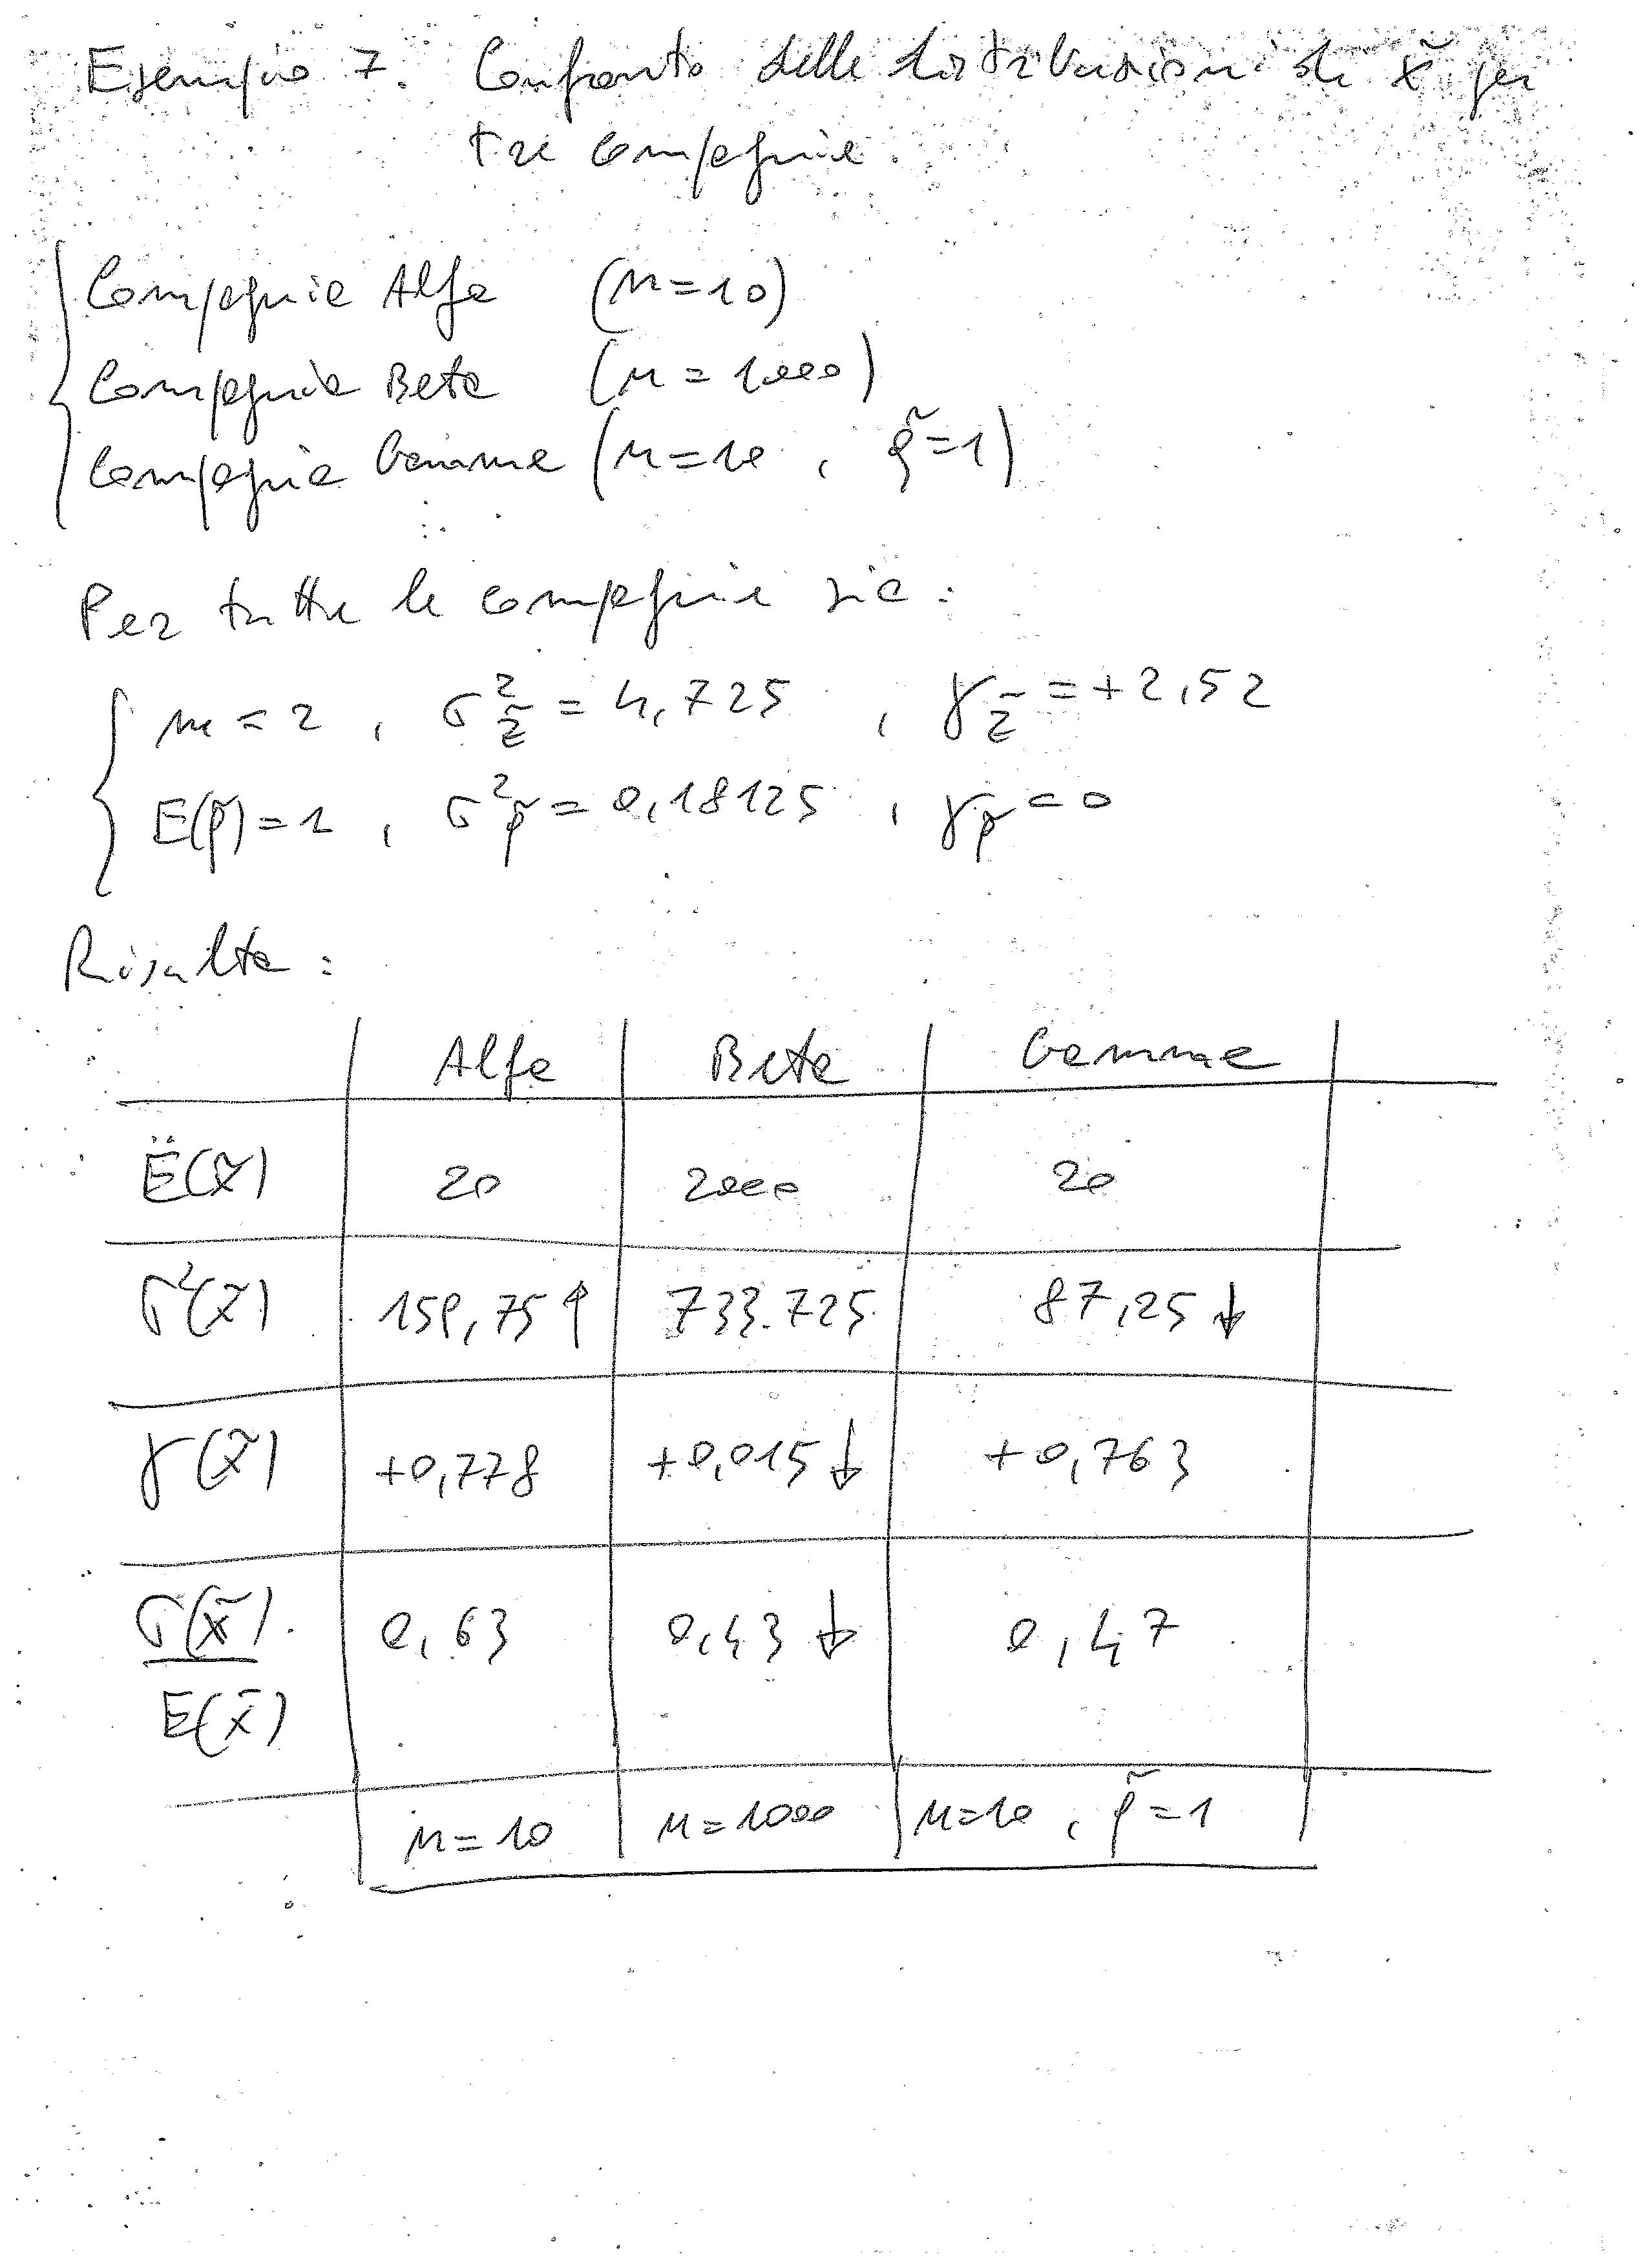 Esempio 7. Confronto delle distribuzioni di x̃ per
tre compagnie.
Compagnia Alfa (n=10)
Compagnia Beta (n=1000)
Compagnia Gamma (n=10, q̃=1)
Per tutte le compagnie sia:
m=2, σ²z̃=4,725, γz̃=+2,52
E(q̃)=1, σ²q̃=0,18125, γq̃=0
Risulta:
Alfa Beta Gamma
E(x̃) 20 2000 20
σ²(x̃) 159,75↑ 733.725 87,25↓
γ(x̃) +0,778 +0,015↓ +0,763
σ(x̃) 0,63 0,43↓ 0,47
E(x̃)
n=10 n=1000 n=10, q̃=1